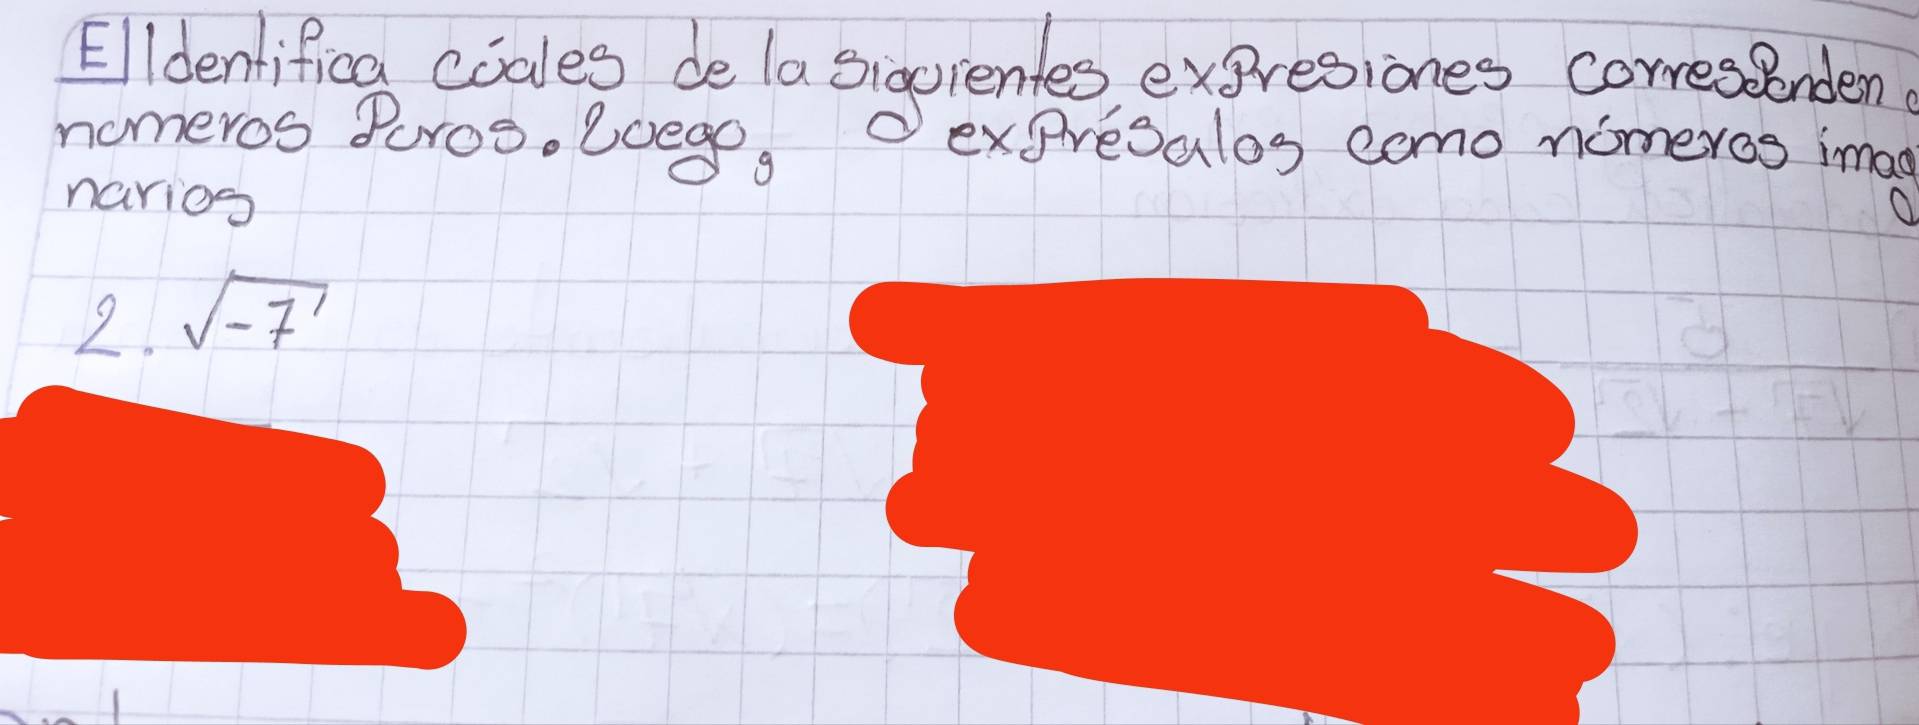 E Identifica cúales de la siguientes expresiones corresponden a
numeros Puros. Luego, exprésalos como números imagi
narios
2. √-7